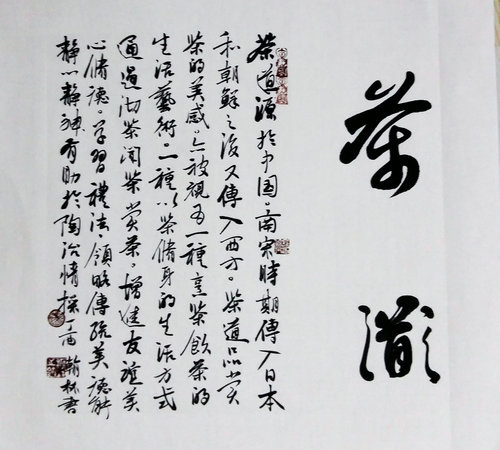 茶道
茶道源於中国。南宋時期傳入日本
和朝鮮之後又傳入西方。茶道品赏
茶的美感。亦被視为一種烹茶飲茶的
生活藝術。一種以茶修身的生活方式
通過沏茶闻茶赏茶。增進友谊美
心修德。学習禮法。領略傳统美德能
静心静神有助於陶冶情操 翰林书